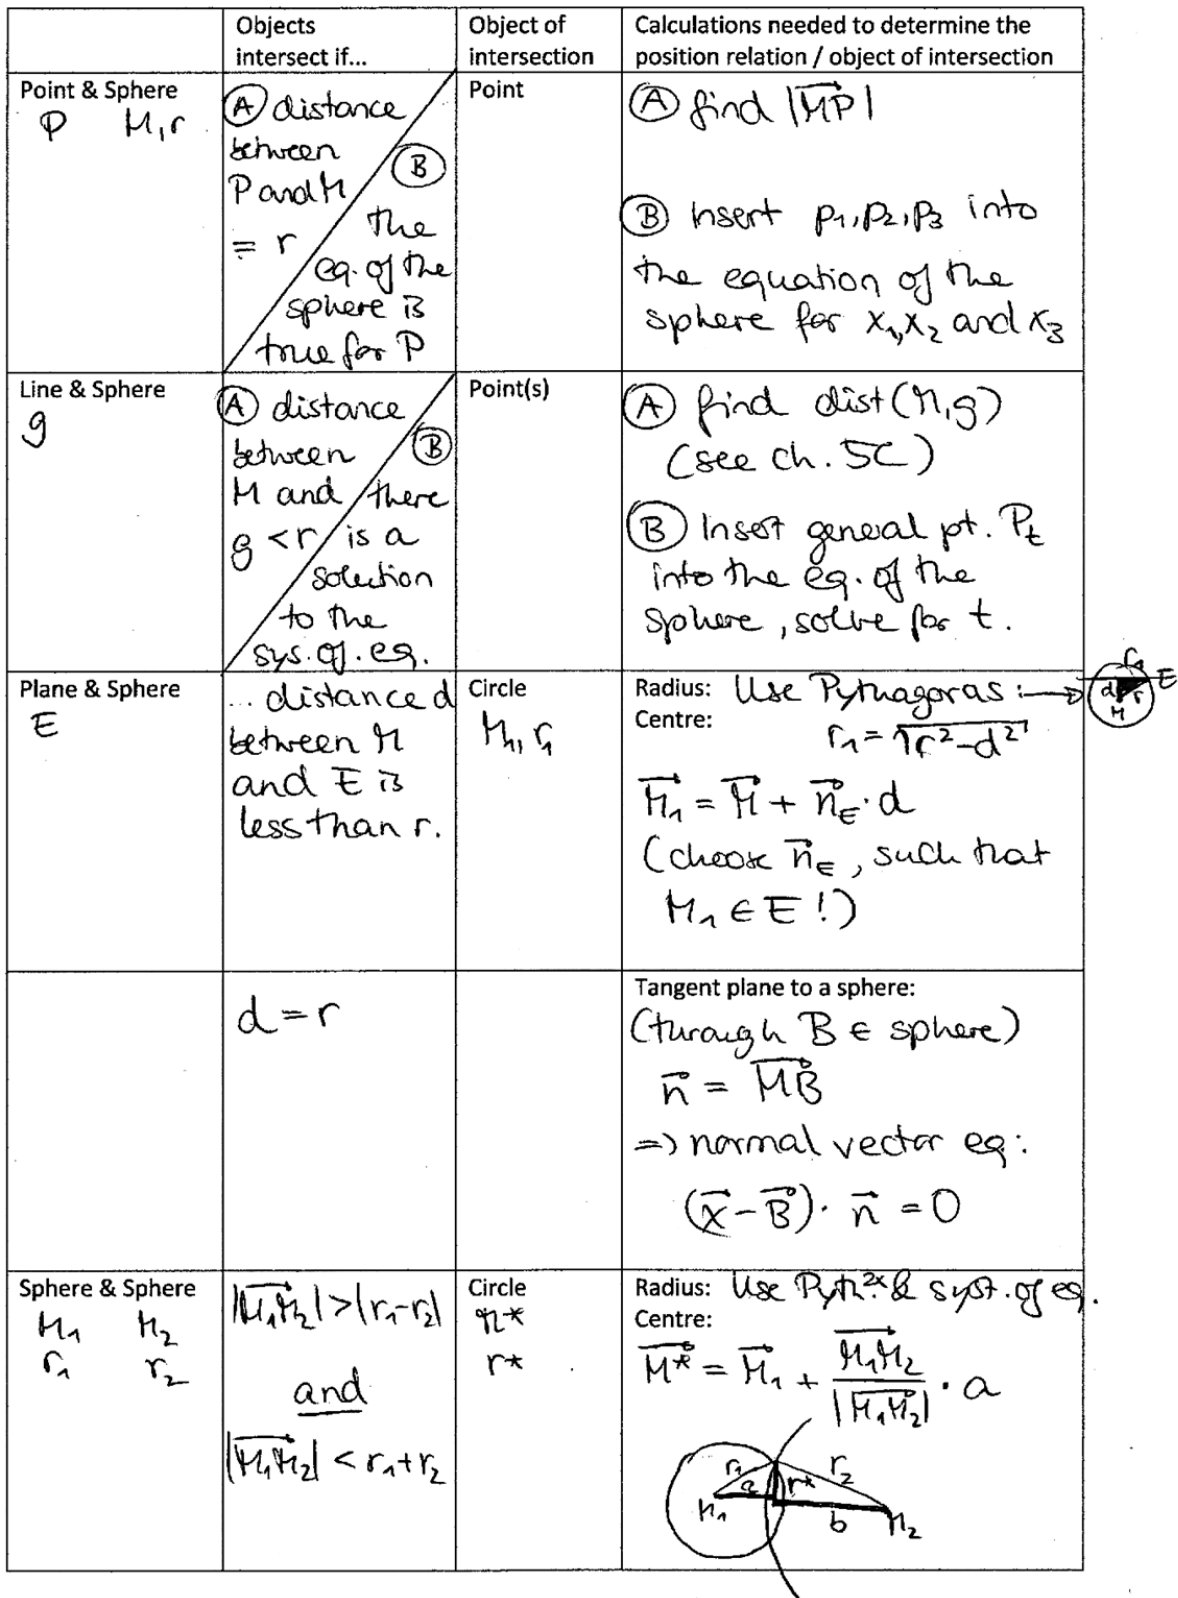 Objects
intersect if...
Object of
intersection
Calculations needed to determine the
position relation / object of intersection
Point & Sphere
P M, r
Ⓐ distance
between
P and M
= r
Ⓑ
the
eq. of the
sphere is
true for P
Point
Ⓐ find |MP⃗|
Ⓑ Insert p₁, p₂, p₃ into
the equation of the
sphere for x₁, x₂ and x₃
Line & Sphere
g
Ⓐ distance
between
M and
g < r
Ⓑ
there
is a
solution
to the
sys. of. eq.
Point(s)
Ⓐ find dist(M, g)
(see ch. 5C)
Ⓑ Insert general pt. Pₜ
into the eq. of the
sphere, solve for t.
Plane & Sphere
E
... distance d
between M
and E is
less than r.
Circle
M₁, r₁
Radius: Use Pythagoras:
Centre:
r₁ = √(r² - d²)
M⃗₁ = M⃗ + n⃗_E · d
(choose n⃗_E, such that
M₁ ∈ E!)
r₁
E
d r
M
d = r
Tangent plane to a sphere:
(through B ∈ sphere)
n⃗ = MB⃗
⇒ normal vector eq:
(x⃗ - B⃗) · n⃗ = 0
Sphere & Sphere
M₁ M₂
r₁ r₂
|M₁M₂⃗| > |r₁ - r₂|
and
|M₁M₂⃗| < r₁ + r₂
Circle
M*
r*
Radius: Use Pyth. 2x & syst. of eq.
Centre:
M*⃗ = M⃗₁ + M₁M₂⃗ / |M₁M₂⃗| · a
r₁ a r* r₂
M₁ b M₂